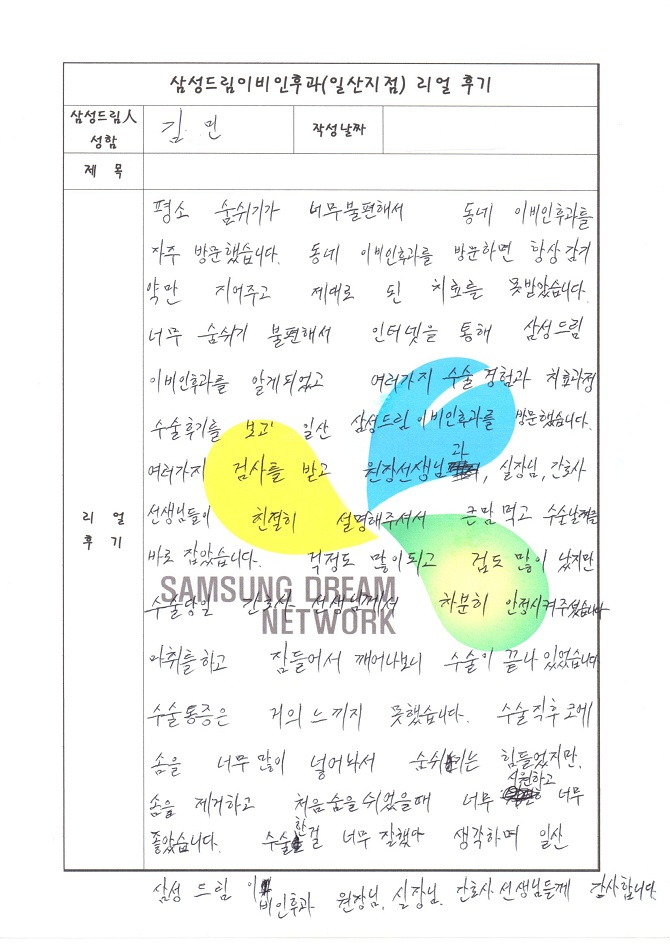 삼성드림이비인후과(일산지점) 리얼 후기
삼성드림人 성함 김 민 작성날짜
제 목
리 얼 후 기
평소 숨쉬기가 너무불편해서 동네 이비인후과를
자주 방문했습니다. 동네 이비인후과를 방문하면 항상 감기
약만 지어주고 제대로 된 치료를 못받았습니다.
너무 숨쉬기 불편해서 인터넷을 통해 삼성드림
이비인후과를 알게되었고 여러가지 수술 경험과 치료과정
수술후기를 보고 일산 삼성드림이비인후과를 방문했습니다.
여러가지 검사를 받고 원장선생님과, 실장님, 간호사
선생님들이 친절히 설명해주셔서 큰맘 먹고 수술날짜를
바로 잡았습니다. 걱정도 많이되고 겁도 많이 났지만
SAMSUNG DREAM
NETWORK
수술당일 간호사 선생님께서 차분히 안정시켜주셨습니다
마취를하고 잠들어서 깨어나보니 수술이 끝나있었습니다
수술통증은 거의 느끼지 못했습니다. 수술직후 코에
솜을 너무 많이 넣어놔서 숨쉬기는 힘들었지만,
솜을 제거하고 처음숨을쉬었을때 너무 시원하고 너무
좋았습니다. 수술한걸 너무 잘했다 생각하며 일산
삼성 드림 이비인후과 원장님, 실장님, 간호사선생님들께 감사합니다.